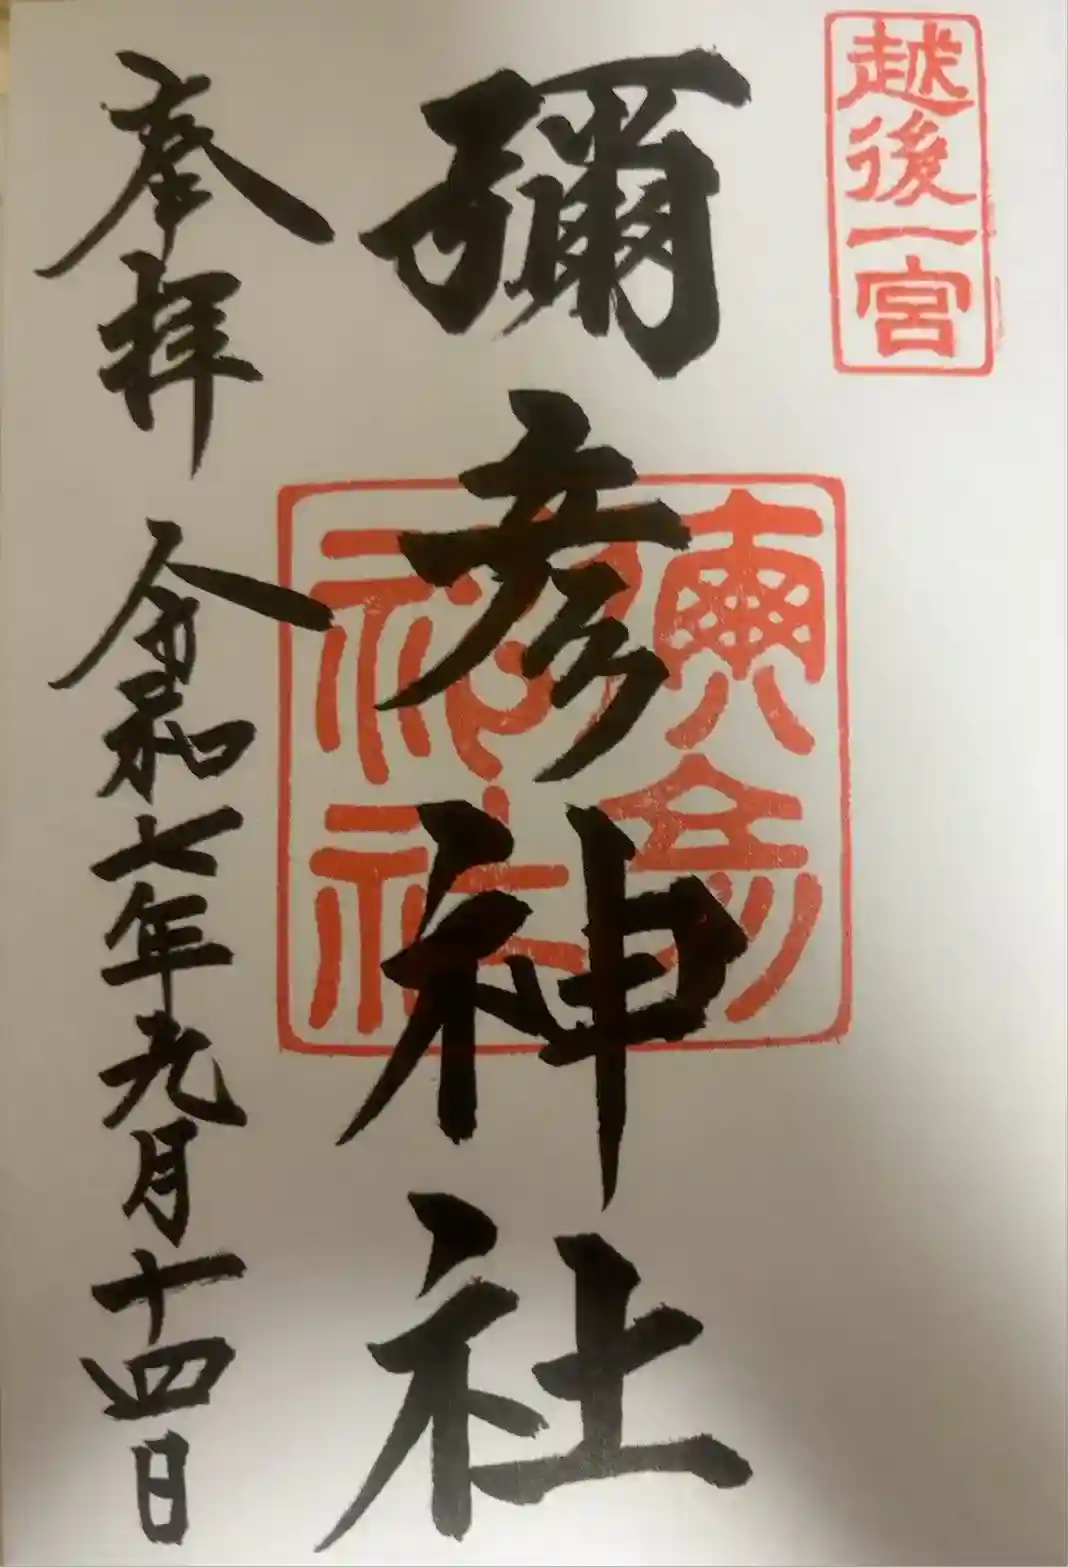 越後一宮
彌彦神社
奉拝 令和七年九月十四日
彌彦神社